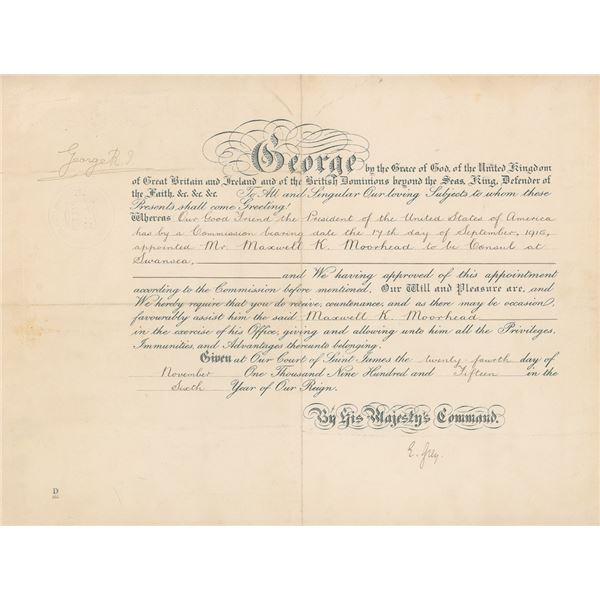 George R. I
George by the Grace of God, of the United Kingdom
of Great Britain and Ireland and of the British Dominions beyond the Seas, King, Defender of
the Faith, &c. &c. &c. To All and Singular Our loving Subjects to whom these
Presents shall come Greeting!
Whereas Our Good Friend the President of the United States of America
has by a Commission bearing date the 17th day of September, 1915,
appointed Mr. Maxwell K. Moorhead to be Consul at
Swansea,
and We having approved of this appointment
according to the Commission before mentioned, Our Will and Pleasure are, and
We hereby require that you do receive, countenance, and as there may be occasion,
favourably assist him the said Maxwell K. Moorhead
in the exercise of his Office, giving and allowing unto him all the Privileges,
Immunities, and Advantages thereunto belonging.
Given at Our Court of Saint James the twenty fourth day of
November One Thousand Nine Hundred and Fifteen in the
Sixth Year of Our Reign.
By His Majesty's Command.
E. Grey.
D